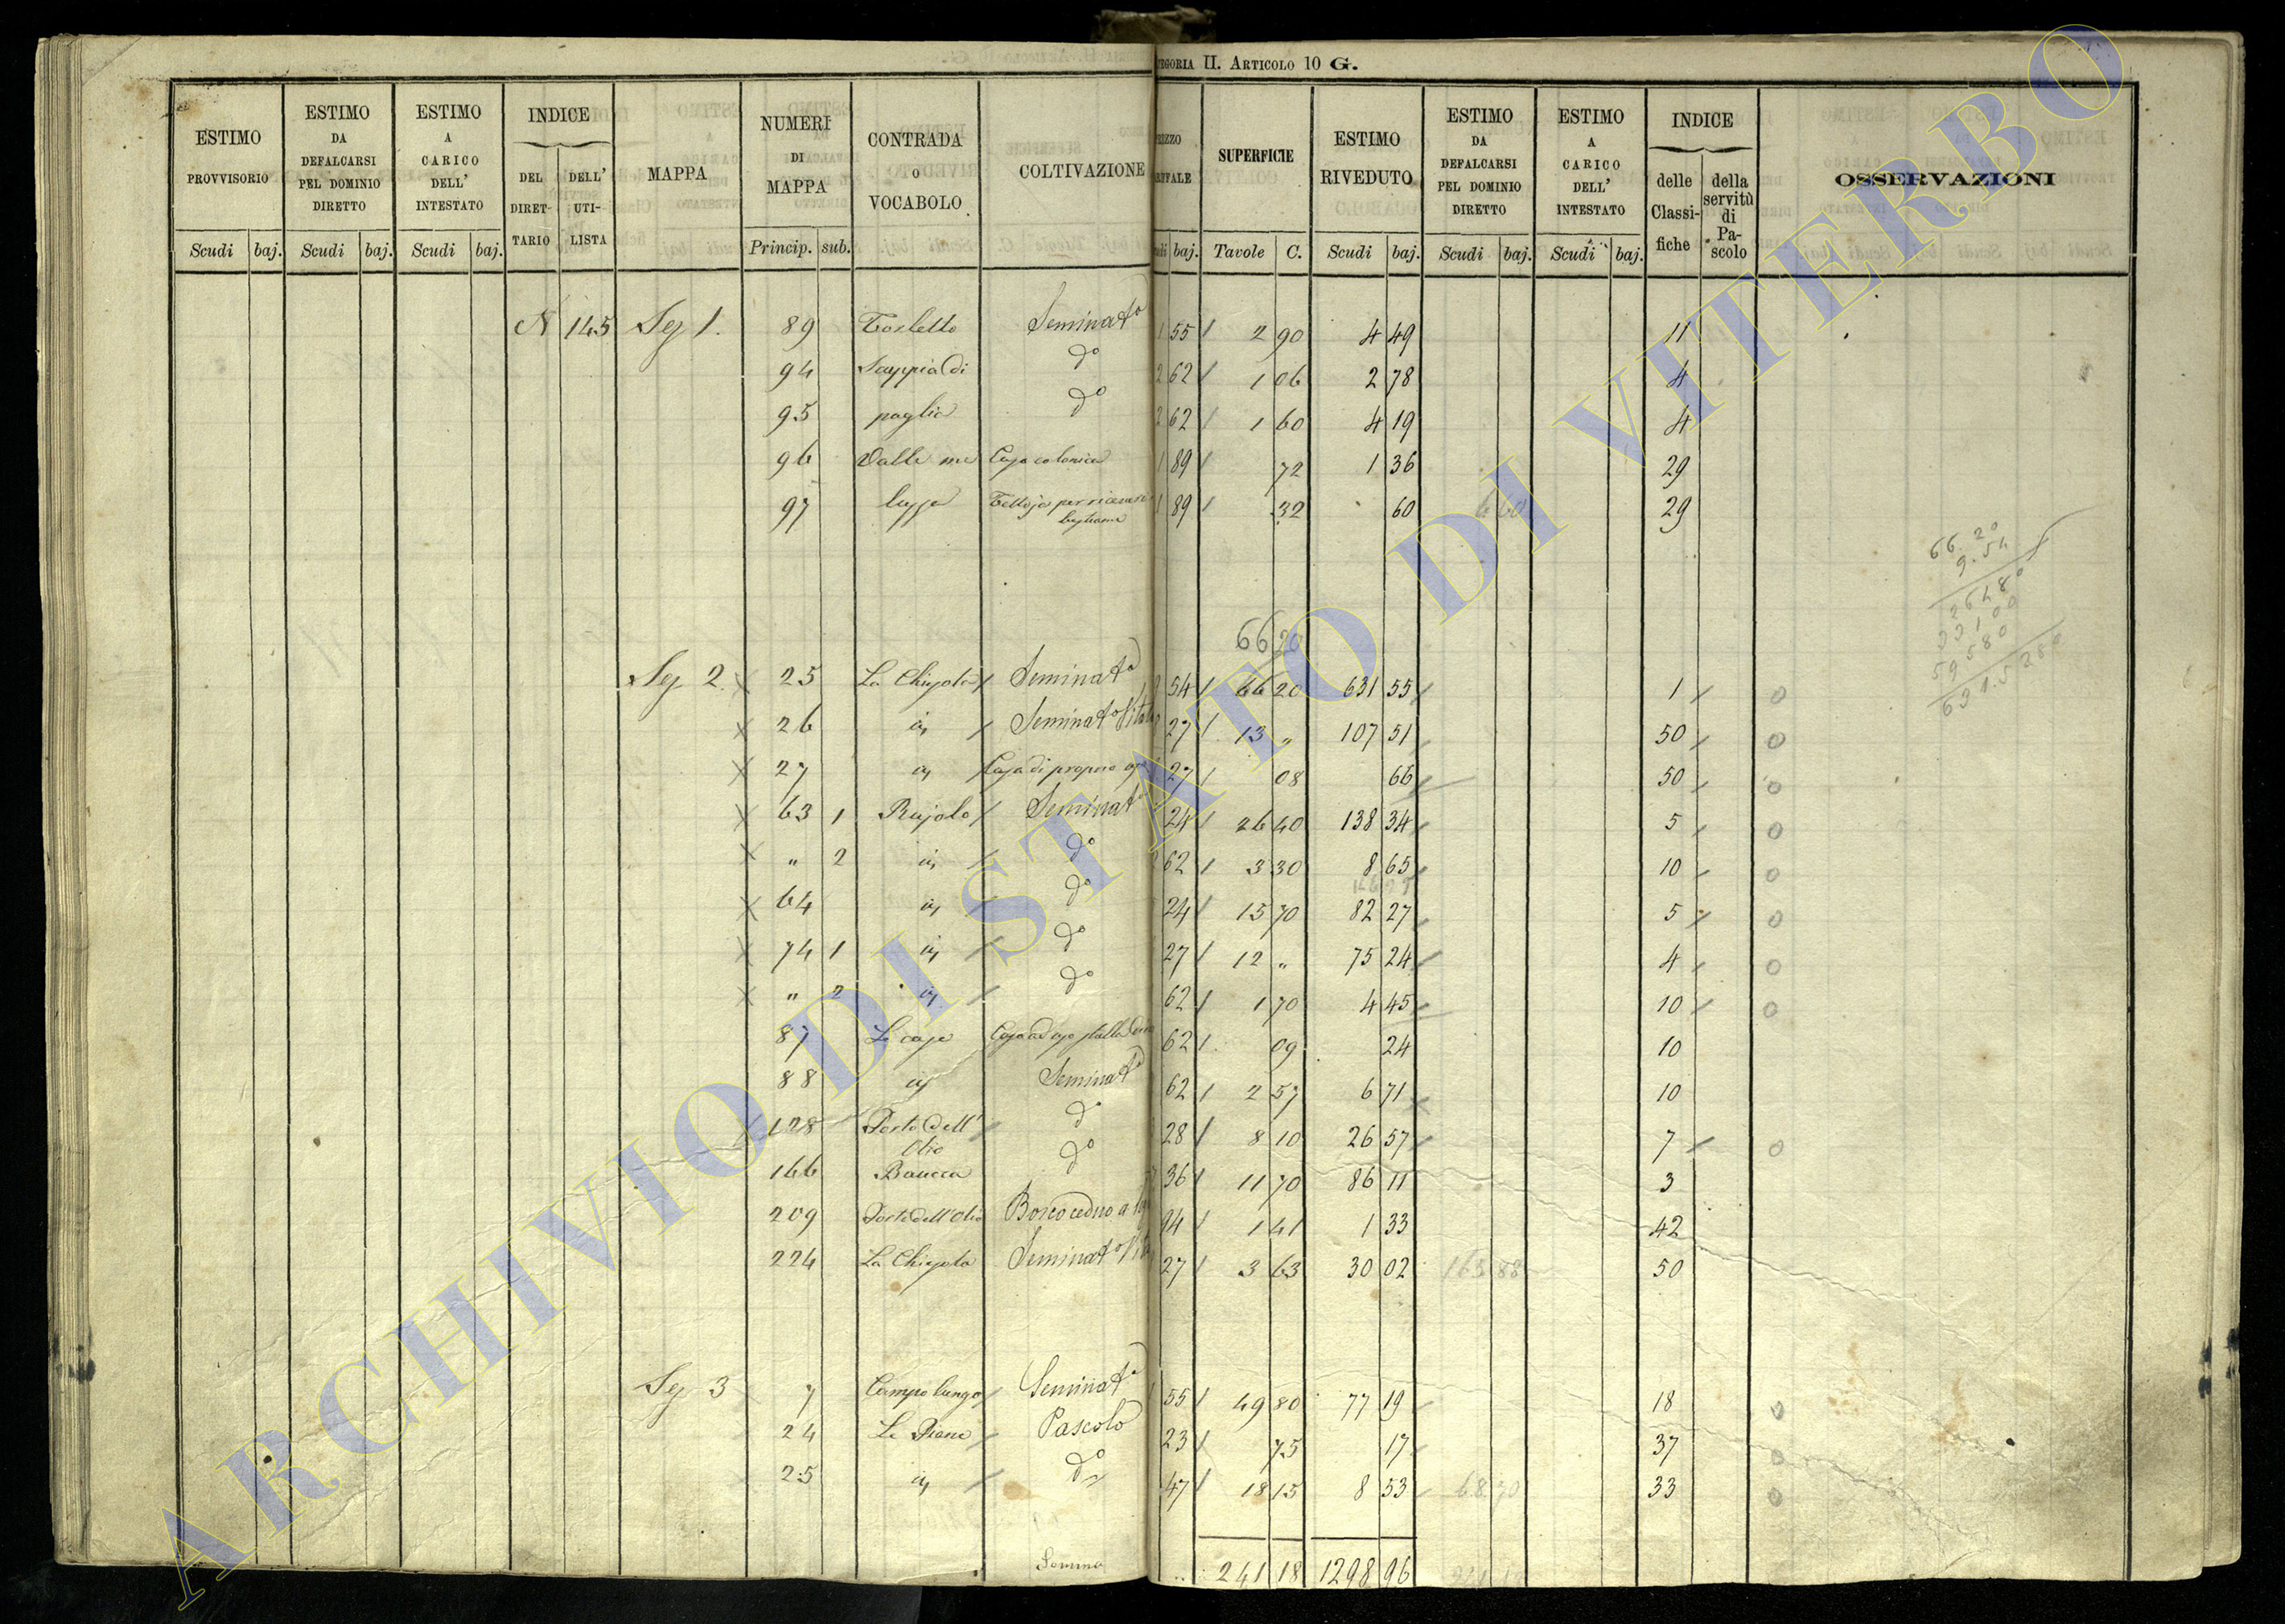 CATEGORIA II. ARTICOLO 10 G.
ESTIMO PROVVISORIO Scudi baj.
ESTIMO DA DEFALCARSI PEL DOMINIO DIRETTO Scudi baj.
ESTIMO A CARICO DELL' INTESTATO Scudi baj.
INDICE DEL DIRET-TARIO DELL' UTI-LISTA
MAPPA
NUMERI DI MAPPA Princip. sub.
CONTRADA O VOCABOLO
COLTIVAZIONE
baj.
SUPERFICIE Tavole C.
ESTIMO RIVEDUTO Scudi baj.
ESTIMO DA DEFALCARSI PEL DOMINIO DIRETTO Scudi baj.
ESTIMO A CARICO DELL' INTESTATO Scudi baj.
INDICE delle Classi-fiche della servitù di Pa-scolo
OSSERVAZIONI
N 145 Sez 1. 89 Seminato 1 55 2 90 4 49 11
94 do 2 62 1 06 2 78 4
95 paglia do 2 62 1 60 4 19 4
96 Valle me Casa colonica 1 89 72 1 36 29
97 Tettoja per 1 89 32 60 29
66 20
Sez 2. 25 La Chiesola Seminato 9 54 66 20 631 55 1 0
26 id Seminato Vitato 27 13 " 107 51 50 0
27 id Casa di proprio 27 08 66 50 0
63 1 Rujolo Seminato 24 26 40 138 34 5 0
" 2 id do 62 3 30 8 65 10 0
64 id do 24 15 70 82 27 5 0
74 1 id do 27 12 " 75 24 4 0
" 2 id do 62 1 70 4 45 10 0
87 Le case Casa ad uso stalla 62 09 24 10
88 id Seminato 62 2 57 6 71 10
128 Porto dell' Olio do 28 8 10 26 57 7 0
166 Baucca do 36 11 70 86 11 3
209 Porto dell'Olio Bosco ceduo a 94 1 41 1 33 42
224 La Chiesola Seminato 27 3 63 30 02 163 88 50
Sez 3 7 Campo lungo Seminato 55 49 80 77 19 18 0
24 Le Piane Pascolo 23 75 17 37 0
25 id do 47 18 15 8 53 68 70 33 0
Somma 241 18 1298 96
66.20
9.54
26480
33100
59580
631.5280
ARCHIVIO DI STATO DI VITERBO